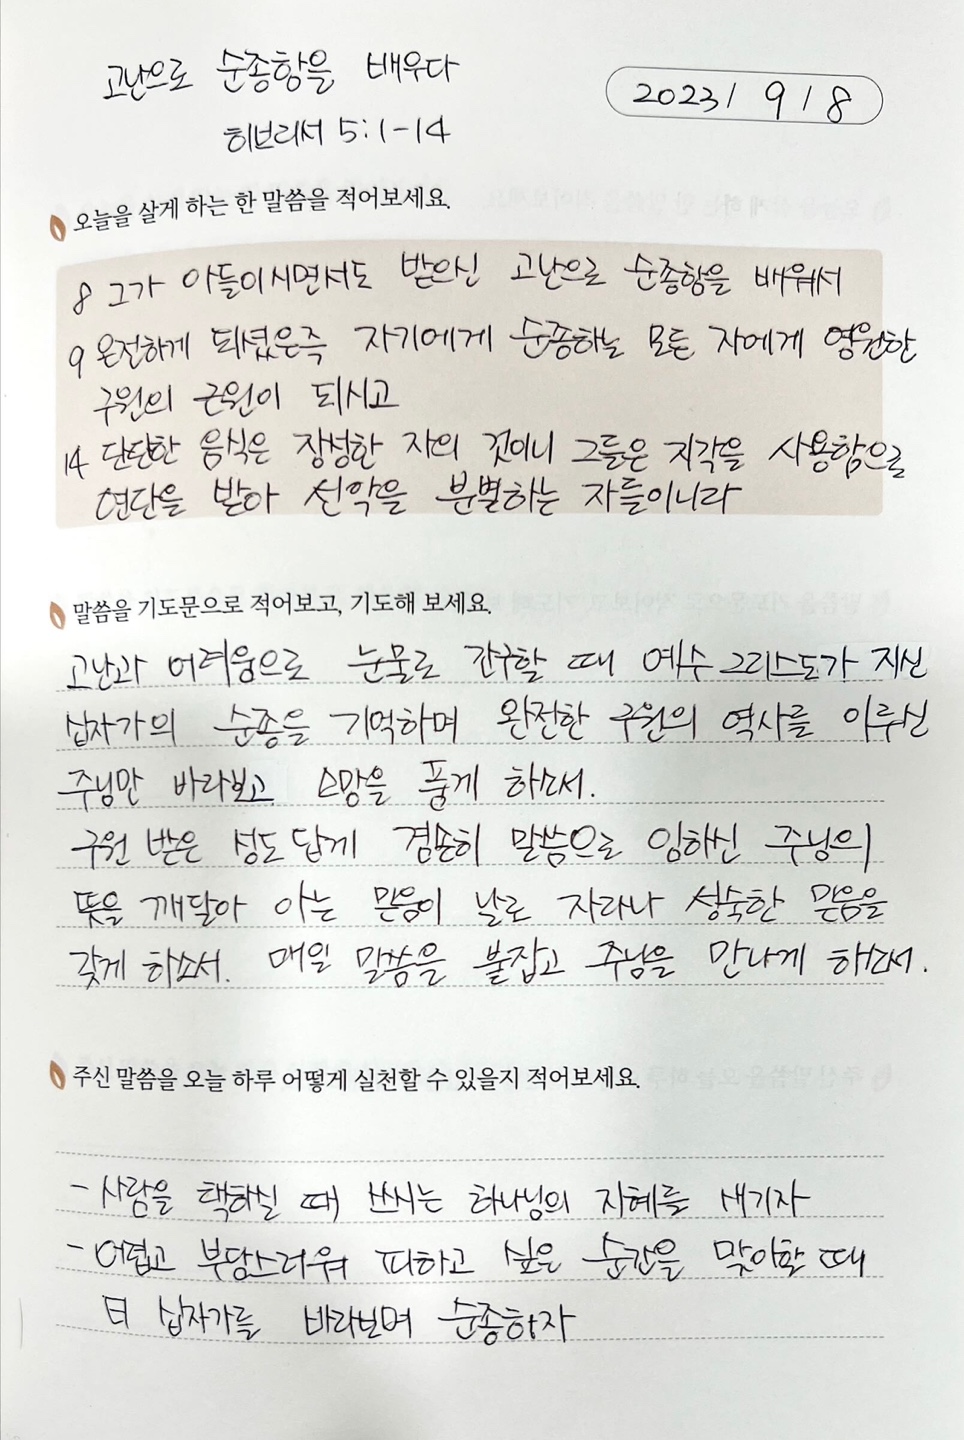 고난으로 순종함을 배우다
2023 / 9 / 8
히브리서 5:1-14
오늘을 살게 하는 한 말씀을 적어보세요.
8 그가 아들이시면서도 받으신 고난으로 순종함을 배워서
9 온전하게 되셨은즉 자기에게 순종하는 모든 자에게 영원한
구원의 근원이 되시고
14 단단한 음식은 장성한 자의 것이니 그들은 지각을 사용함으로
연단을 받아 선악을 분별하는 자들이니라
말씀을 기도문으로 적어보고, 기도해 보세요.
고난과 어려움으로 눈물로 간구할 때 예수 그리스도가 지신
십자가의 순종을 기억하며 완전한 구원의 역사를 이루신
주님만 바라보고 소망을 품게 하소서.
구원 받은 성도 답게 겸손히 말씀으로 임하신 주님의
뜻을 깨달아 아는 믿음이 날로 자라나 성숙한 믿음을
갖게 하소서. 매일 말씀을 붙잡고 주님을 만나게 하소서.
주신 말씀을 오늘 하루 어떻게 실천할 수 있을지 적어보세요.
- 사람을 택하실 때 쓰시는 하나님의 지혜를 새기자
- 어렵고 부담스러워 피하고 싶은 순간을 맞이할 때
십자가를 바라보며 순종하자